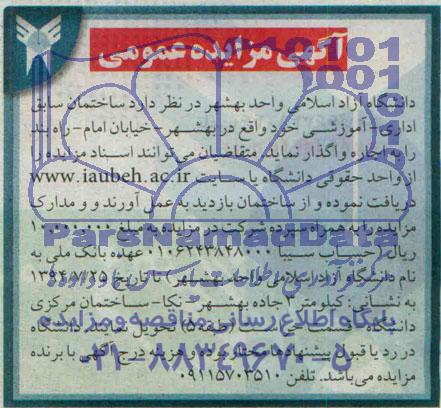 آگهی مزایده عمومی
دانشگاه آزاد اسلامی واحد بهشهر در نظر دارد ساختمان سابق
اداری-آموزشی خود واقع در بهشهر-خیابان امام-راه بند
را به اجاره واگذار نماید. متقاضیان می‌توانند اسناد مزایده را
از واحد حقوقی دانشگاه یا سایت www.iaubeh.ac.ir
دریافت نموده و از ساختمان بازدید به عمل آورند و و مدارک
مزایده را به همراه سپرده شرکت در مزایده به مبلغ ۱۰,۰۰۰,۰۰۰
ریال (حساب سیبا عهده بانک ملی به
نام دانشگاه آزاد اسلامی واحد بهشهر) تا تاریخ ۱۳۹۴/۸/۲۵
به نشانی: کیلومتر ۳ جاده بهشهر-نکا-ساختمان مرکزی
دانشگاه-قسمت حراست تحویل نمایند. دانشگاه
در رد یا قبول پیشنهادها مختار بوده و هزینه درج آگهی با برنده
مزایده می‌باشد. تلفن ۰۹۱۱۵۷۰۳۵۱۰
ParsNamadData
پایگاه اطلاع رسانی مناقصه و مزایده
۰۲۱-۸۸۳۴۹۶۷۰-۵